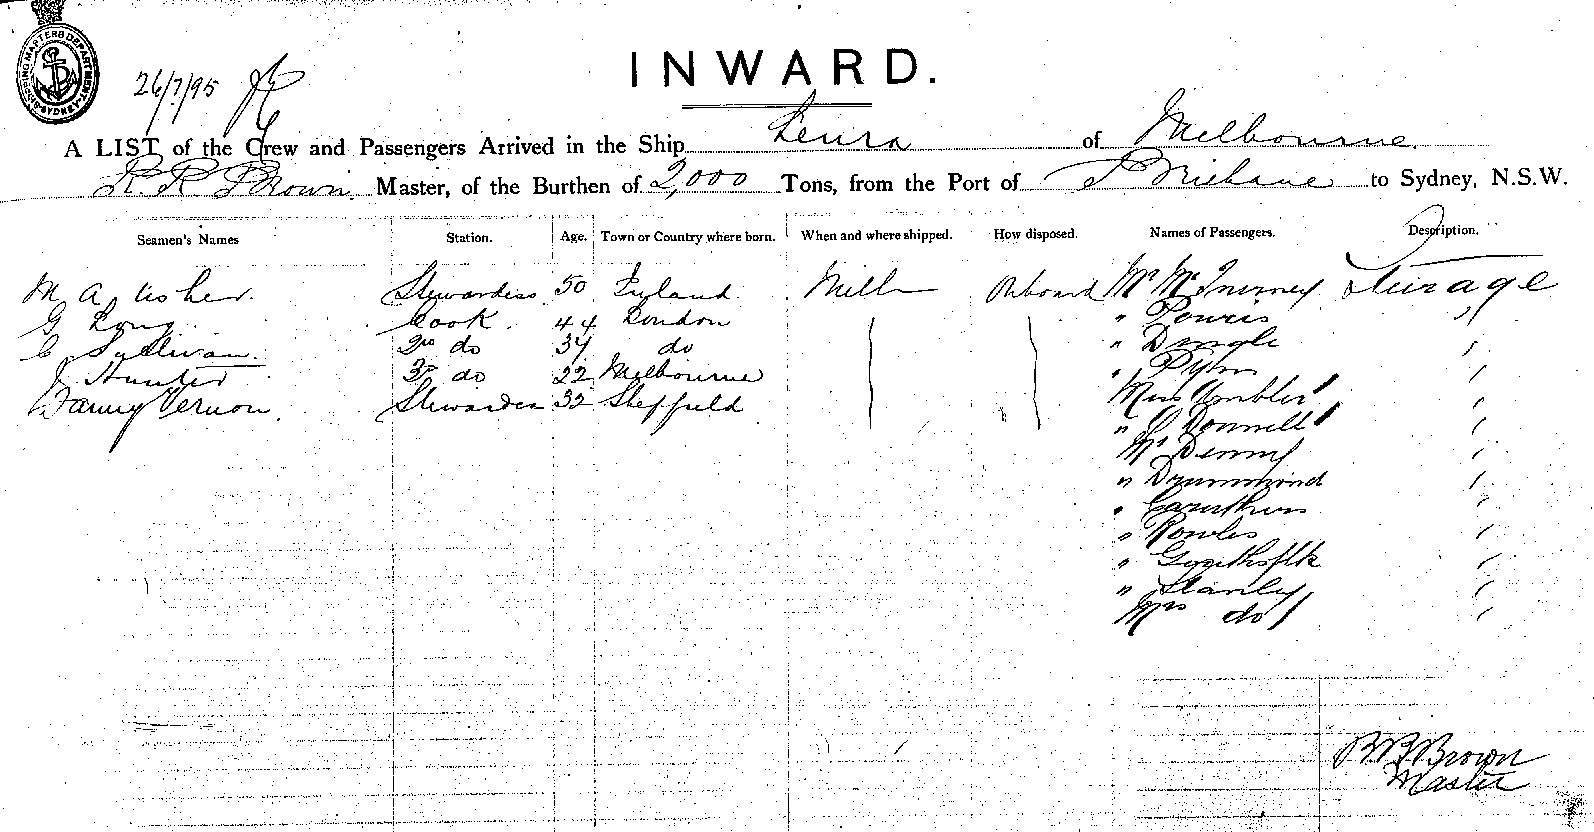 SHIPPING MASTERS DEPARTMENT SYDNEY
26/7/95
INWARD.
A LIST of the Crew and Passengers Arrived in the Ship Leura of Melbourne.
Brown Master, of the Burthen of 2,000 Tons, from the Port of Brisbane to Sydney, N.S.W.
Seamen's Names Station. Age. Town or Country where born. When and where shipped. How disposed. Names of Passengers. Description.
M A Usher. Stewardess 50 Ireland Melb Onboard Mr McInerney Steerage
G Long Cook 44 London " Powris "
C Sullivan 2nd do 34 do " Dingle "
J Hunter 3rd do 22 Melbourne "
Vernon Stewardess 32 Sheffield Miss Ambler "
" O'Donnell "
Mr Denny "
" Drummond "
" Caruthers "
" Rowles "
" "
" Stanley "
Mrs do "
Brown
Master